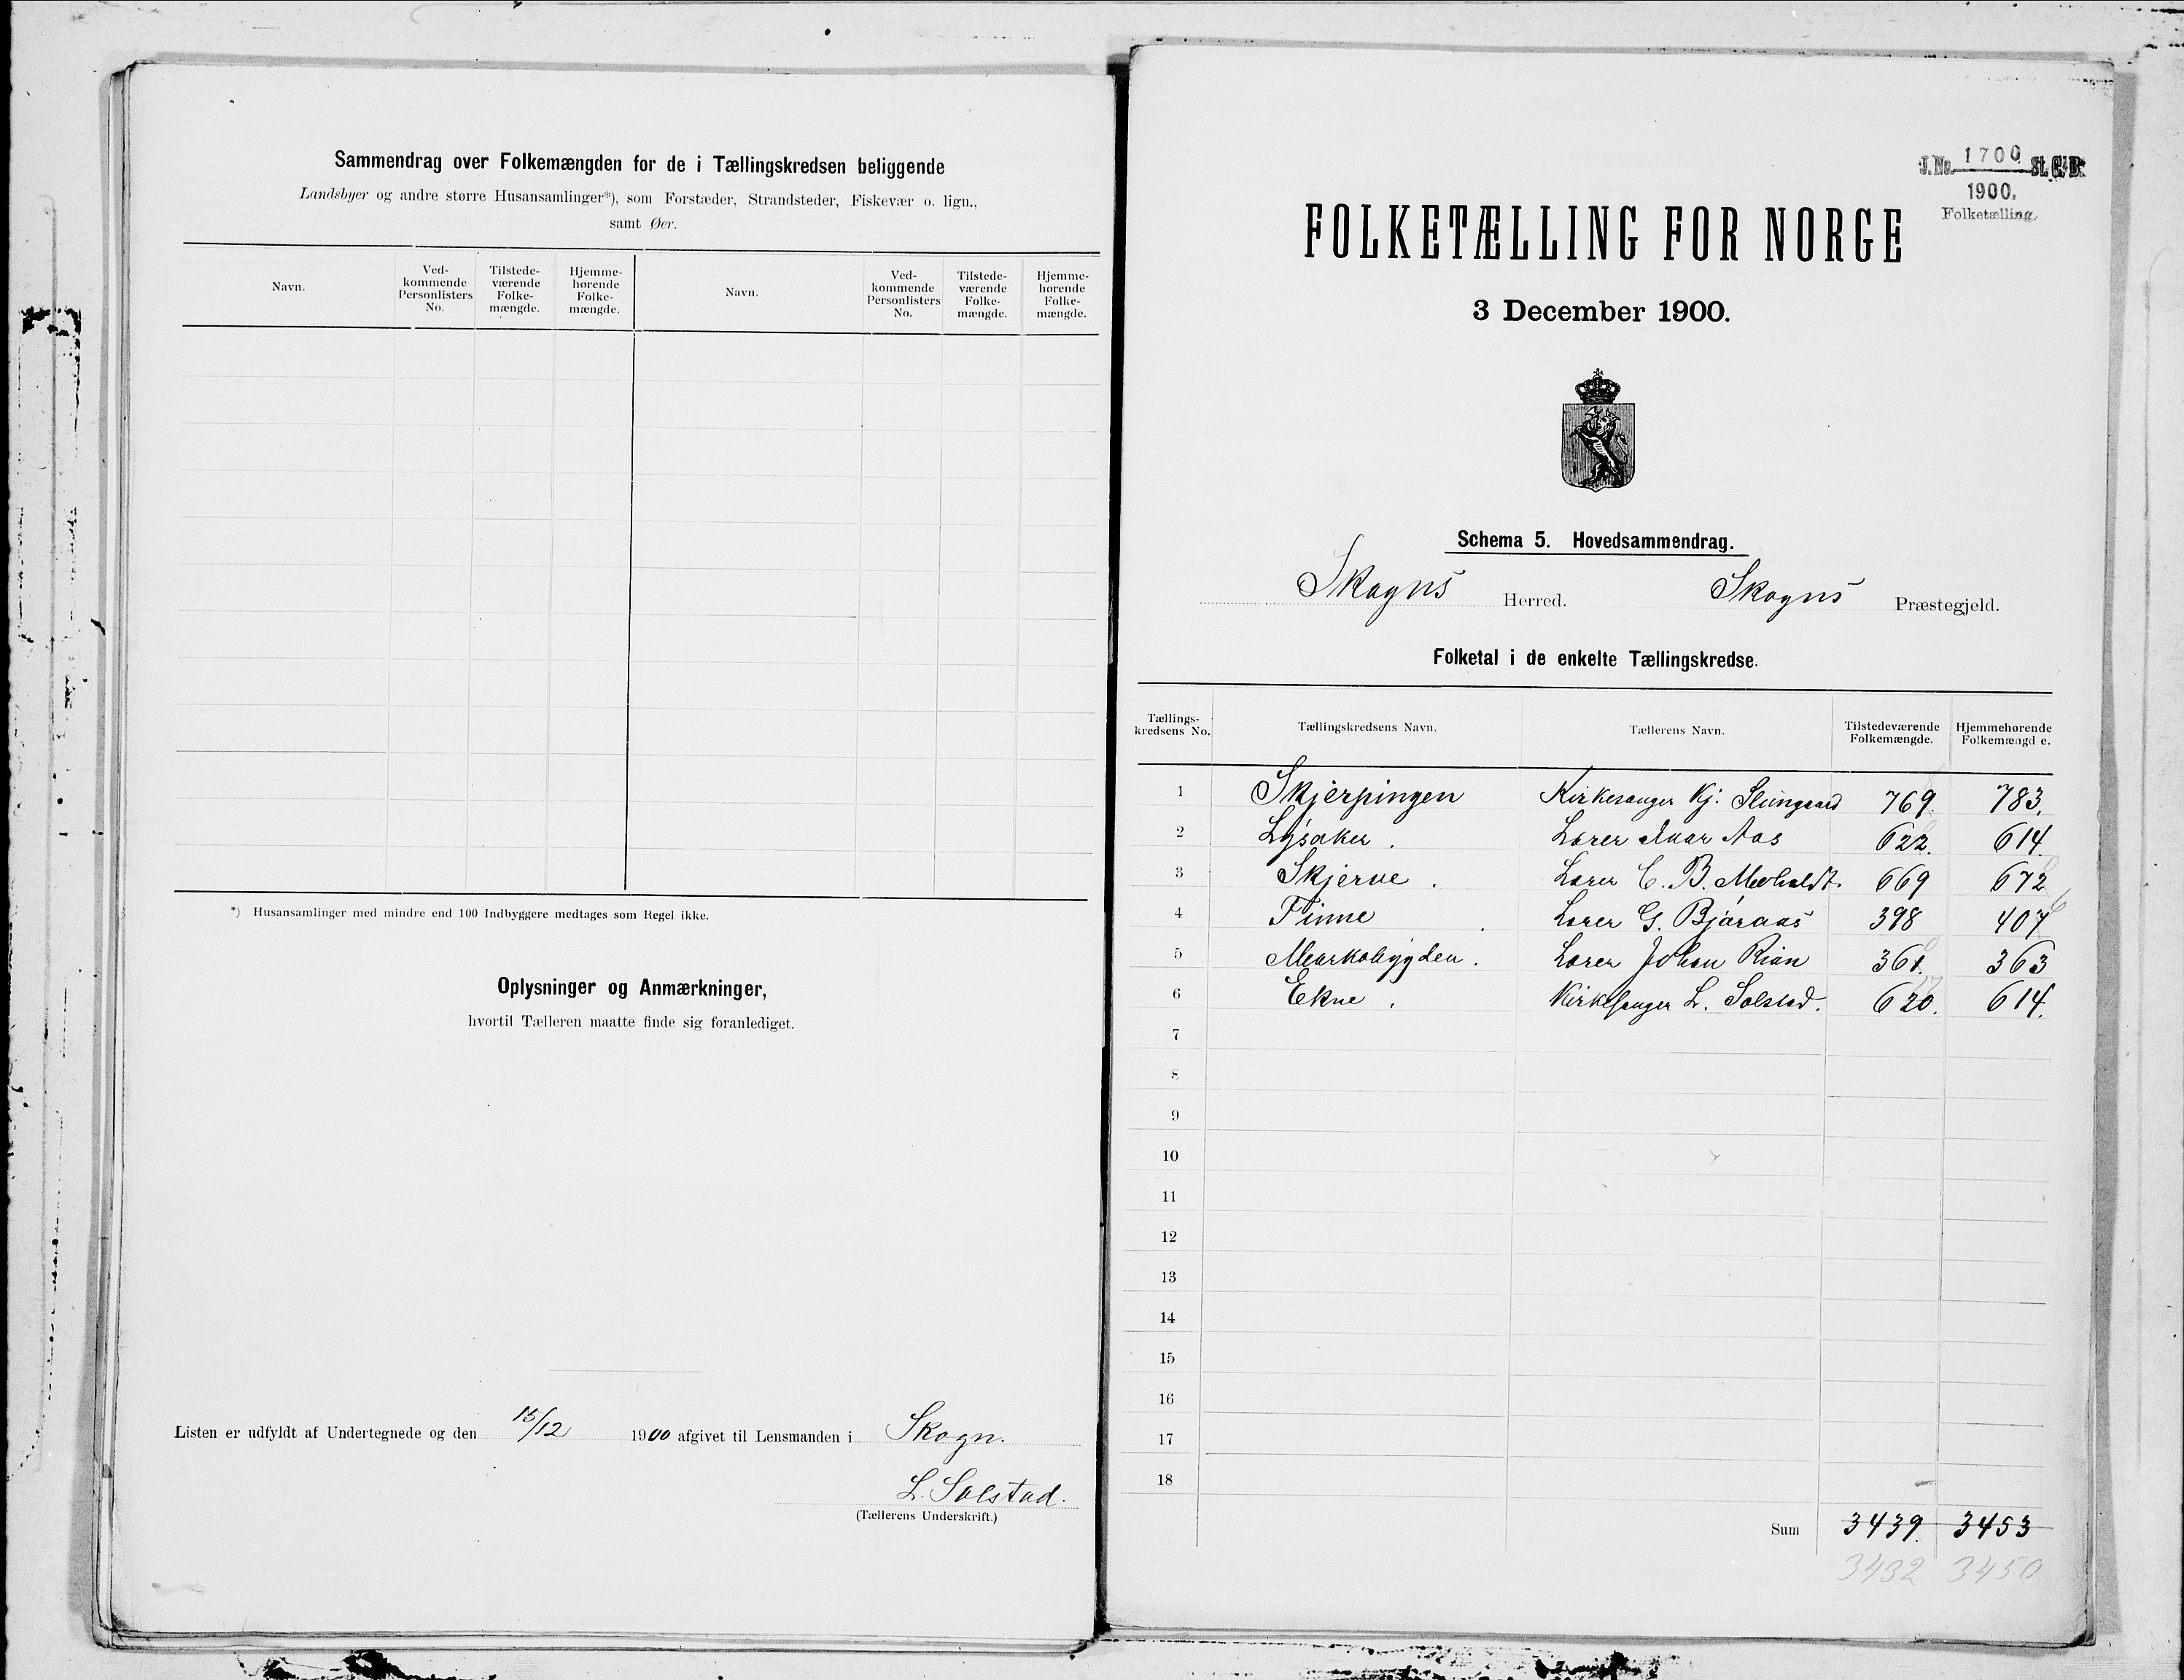 Sammendrag over Folkemængden for de i Tællingskredsen beliggende
Landsbyer og andre større Husansamlinger*), som Forstæder, Strandsteder, Fiskevær o. lign.,
samt Øer.
Navn. Ved-kommende Personlisters No. Tilstede-værende Folke-mængde. Hjemme-hørende Folke-mængde. Navn. Ved-kommende Personlisters No. Tilstede-værende Folke-mængde. Hjemme-hørende Folke-mængde.
*) Husansamlinger med mindre end 100 Indbyggere medtages som Regel ikke.
Oplysninger og Anmærkninger,
hvortil Tælleren maatte finde sig foranlediget.
Listen er udfyldt af Undertegnede og den 15/12 1900 afgivet til Lensmanden i Skogn.
L. Solstad.
(Tællerens Underskrift.)
J. No. 1700 St. C. B.
1900.
Folketælling.
FOLKETÆLLING FOR NORGE
3 December 1900.
Schema 5. Hovedsammendrag.
Skogns Herred. Skogns Præstegjeld.
Folketal i de enkelte Tællingskredse.
Tællings-kredsens No. Tællingskredsens Navn. Tællerens Navn. Tilstedeværende Folkemængde. Hjemmehørende Folkemængde.
1 Skjerpingen Kirkesanger Kj. 769. 783.
2 Lysaker. Lærer Ivar Aas 622. 614.
3 Skjerve. Lærer C. B. 669 672
4 Finne. Lærer G. Bjøraas 398 407
5 Markabygden. Lærer Johan Rian 361. 363
6 Ekne. Kirkesanger L. Solstad. 620. 614.
7
8
9
10
11
12
13
14
15
16
17
18
Sum 3439. 3453
3432 3450